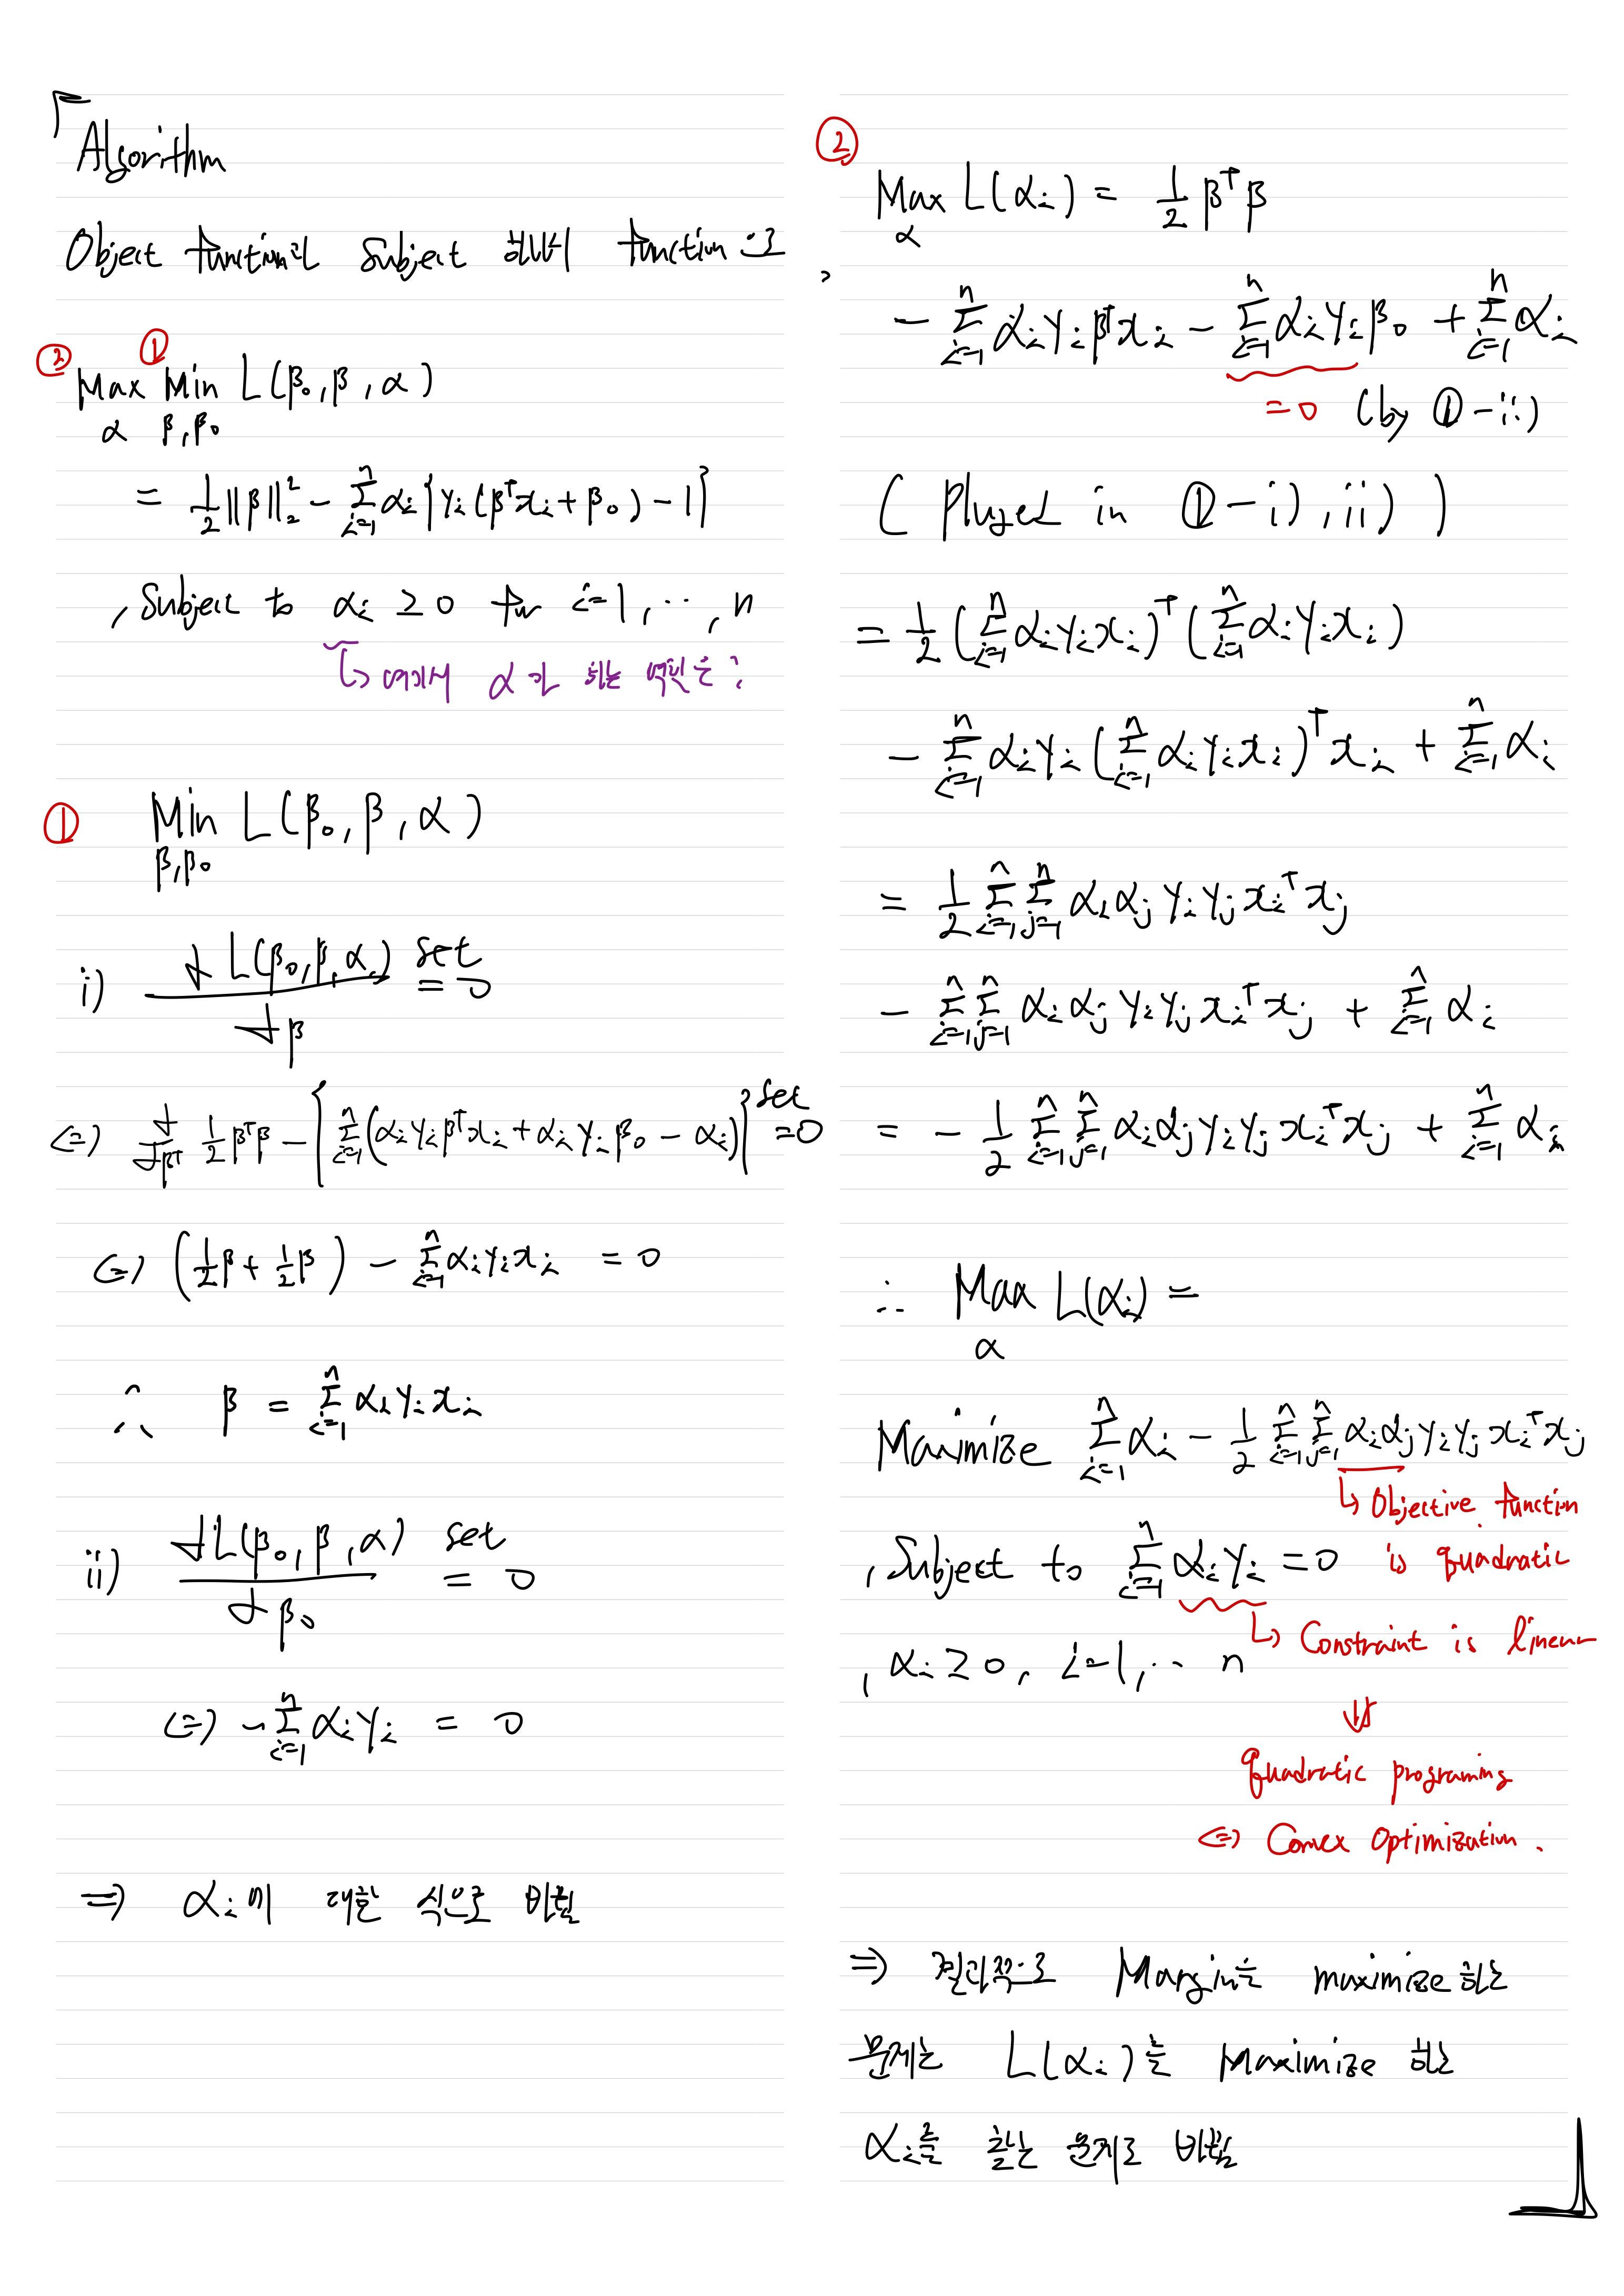 Algorithm
Object function과 Subject 하나의 function으로
② ①
Max Min L(β₀, β, α)
α β,β₀
= 1/2 ||β||₂² - Σᵢ₌₁ⁿ αᵢ{yᵢ(βᵀxᵢ + β₀) - 1}
, Subject to αᵢ ≥ 0 for i=1, ⋯, n
↳ 여기서 α가 하는 역할은?
① Min L(β₀, β, α)
β,β₀
i) d L(β₀, β, α) / dβ set = 0
⇔ d/dβᵀ 1/2 βᵀβ - {Σᵢ₌₁ⁿ (αᵢyᵢβᵀxᵢ + αᵢyᵢβ₀ - αᵢ)} set = 0
⇔ (1/2 β + 1/2 β) - Σᵢ₌₁ⁿ αᵢyᵢxᵢ = 0
∴ β = Σᵢ₌₁ⁿ αᵢyᵢxᵢ
ii) dL(β₀, β, α) / dβ₀ set = 0
⇔ - Σᵢ₌₁ⁿ αᵢyᵢ = 0
⇒ αᵢ에 대한 식으로 바뀜
②
Max L(αᵢ) = 1/2 βᵀβ
α
- Σᵢ₌₁ⁿ αᵢyᵢβᵀxᵢ - Σᵢ₌₁ⁿ αᵢyᵢβ₀ + Σᵢ₌₁ⁿ αᵢ
= 0 (by ①-ii)
(Pluged in ①-i), ii))
= 1/2 (Σᵢ₌₁ⁿ αᵢyᵢxᵢ)ᵀ (Σᵢ₌₁ⁿ αᵢyᵢxᵢ)
- Σᵢ₌₁ⁿ αᵢyᵢ (Σᵢ₌₁ⁿ αᵢyᵢxᵢ)ᵀ xᵢ + Σᵢ₌₁ⁿ αᵢ
= 1/2 Σᵢ₌₁ⁿ Σⱼ₌₁ⁿ αᵢαⱼyᵢyⱼxᵢᵀxⱼ
- Σᵢ₌₁ⁿ Σⱼ₌₁ⁿ αᵢαⱼyᵢyⱼxᵢᵀxⱼ + Σᵢ₌₁ⁿ αᵢ
= - 1/2 Σᵢ₌₁ⁿ Σⱼ₌₁ⁿ αᵢαⱼyᵢyⱼxᵢᵀxⱼ + Σᵢ₌₁ⁿ αᵢ
∴ Max L(αᵢ) =
α
Maximize Σᵢ₌₁ⁿ αᵢ - 1/2 Σᵢ₌₁ⁿ Σⱼ₌₁ⁿ αᵢαⱼyᵢyⱼxᵢᵀxⱼ
↳ Objective function
is quadratic
, Subject to Σᵢ₌₁ⁿ αᵢyᵢ = 0
↳ Constraint is linear
, αᵢ ≥ 0, i=1, ⋯ n
⇓
quadratic programing
⇔ Convex Optimization.
⇒ 결과적으로 Margin을 maximize 하는
문제는 L(αᵢ)를 Maximize 하는
αᵢ를 찾는 문제로 바뀜